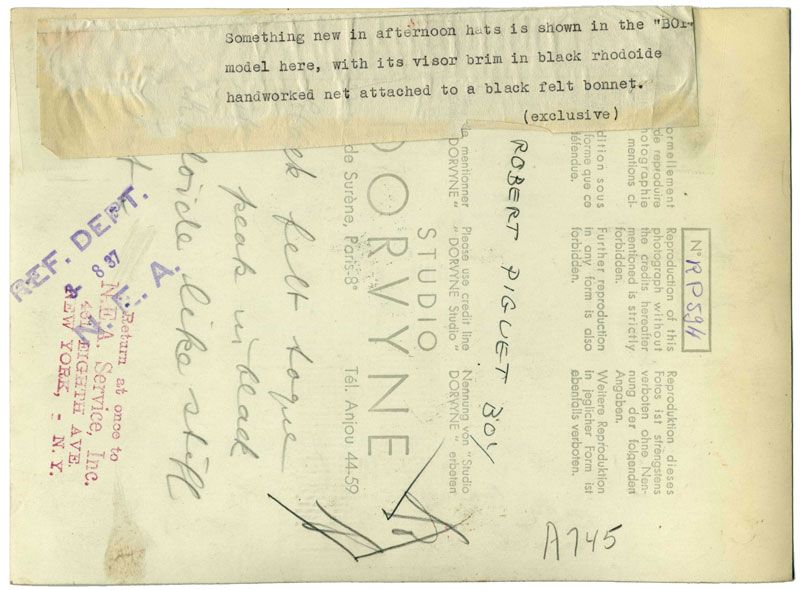 Something new in afternoon hats is shown in the "BOY"
model here, with its visor brim in black rhodoide
handworked net attached to a black felt bonnet.
(exclusive)
N° RP594
ormellement
de reproduire
hotographie
mentions ci-
dition sous
forme que ce
défendue.
Reproduction of this
photograph without
the credits hereafter
mentioned is strictly
forbidden.
Further reproduction
in any form is also
forbidden.
Reproduktion dieses
Fotos ist strengstens
verboten ohne Nen-
nung der folgenden
Angaben.
Weitere Reproduktion
in jeglicher Form ist
ebenfalls verboten.
ROBERT PIGUET BOY
mentionner
DORVYNE"
Please use credit line
"DORVYNE Studio"
Nennung von "Studio
DORVYNE" erbeten
STUDIO
DORVYNE
de Surène, Paris-8e
Tél. Anjou 44-59
felt toque
peak in black
like stiff
REF. DEPT.
8 37
N. E. A.
Return at once to
N.E.A. Service, Inc.
EIGHTH AVE.
NEW YORK, - N. Y.
A745